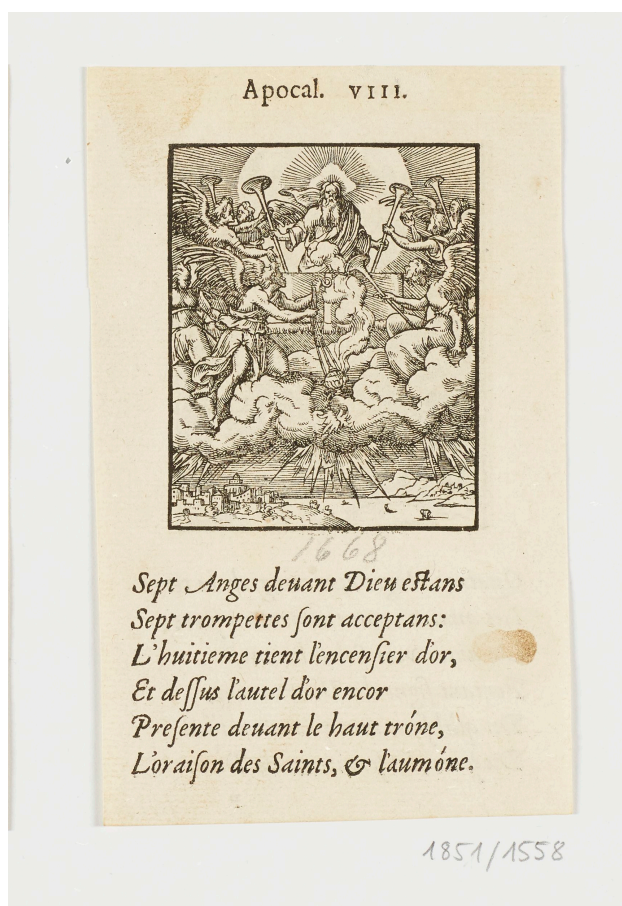 Apocal. VIII.
1668
Sept Anges deuant Dieu eſtans
Sept trompettes ſont acceptans:
L'huitieme tient l'encenſier d'or,
Et deſſus l'autel d'or encor
Preſente deuant le haut tróne,
L'oraiſon des Saints, & l'aumóne.
1851/1558